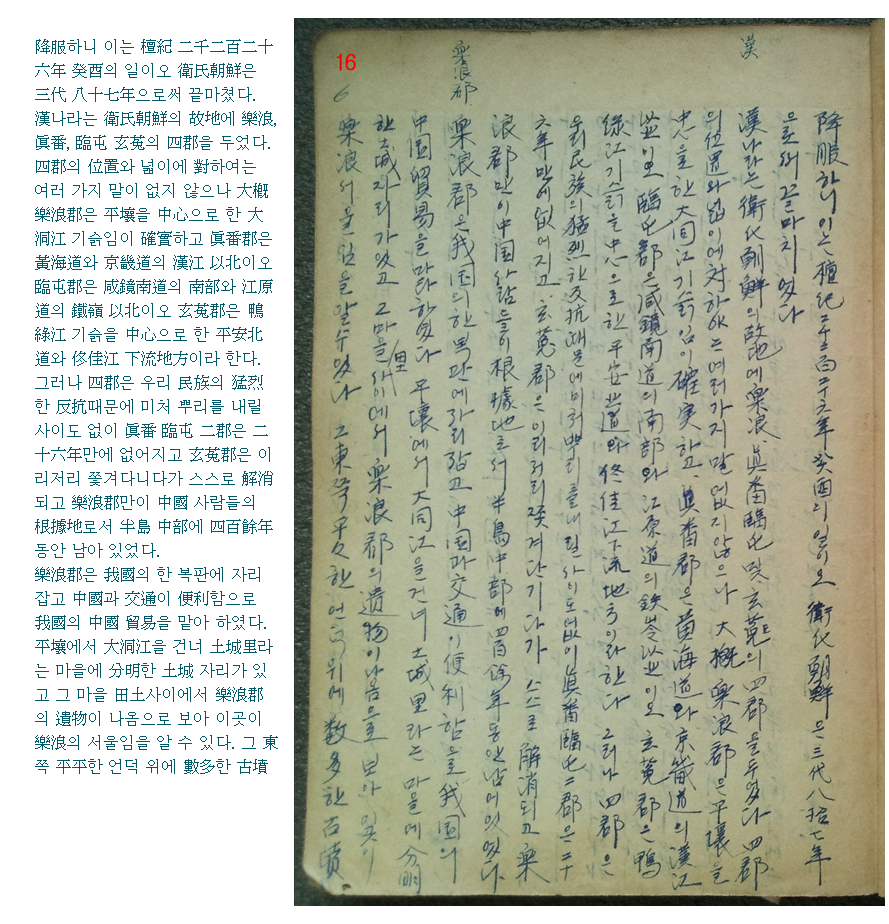 降服하니 이는 檀紀 二千二百二十
六年 癸酉의 일이오 衛氏朝鮮은
三代 八十七年으로써 끝마쳤다.
漢나라는 衛氏朝鮮의 故地에 樂浪,
眞番, 臨屯 玄菟의 四郡을 두었다.
四郡의 位置와 넓이에 對하여는
여러 가지 말이 없지 않으나 大槪
樂浪郡은 平壤을 中心으로 한 大
洞江 기슭임이 確實하고 眞番郡은
黃海道와 京畿道의 漢江 以北이오
臨屯郡은 咸鏡南道의 南部와 江原
道의 鐵嶺 以北이오 玄菟郡은 鴨
綠江 기슭을 中心으로 한 平安北
道와 佟佳江 下流地方이라 한다.
그러나 四郡은 우리 民族의 猛烈
한 反抗때문에 미처 뿌리를 내릴
사이도 없이 眞番 臨屯 二郡은 二
十六年만에 없어지고 玄菟郡은 이
리저리 쫓겨다니다가 스스로 解消
되고 樂浪郡만이 中國 사람들의
根據地로서 半島 中部에 四百餘年
동안 남아 있었다.
樂浪郡은 我國의 한 복판에 자리
잡고 中國과 交通이 便利함으로
我國의 中國 貿易을 맡아 하였다.
平壤에서 大洞江을 건너 土城里라
는 마을에 分明한 土城 자리가 있
고 그 마을 田土사이에서 樂浪郡
의 遺物이 나옴으로 보아 이곳이
樂浪의 서울임을 알 수 있다. 그 東
쪽 平平한 언덕 위에 數多한 古墳
16
漢
樂浪郡
6
降服하니 이는 檀紀 二千二百二十六年 癸酉의 일이오 衛氏朝鮮은 三代 八拾七年
으로써 끝마치었다
漢나라는 衛氏朝鮮의 故地에 樂浪、眞番 臨屯 및 玄菟의 四郡을 두었다 四郡
의 位置와 넓이에 対하야는 여러가지 말 없지않으나 大槪 樂浪郡은 平壤을
中心을 한 大同江 기슭임이 確実하고、眞番郡은 黃海道와 京畿道의 漢江
以北이오 臨屯郡은 咸鏡南道의 南部와 江原道의 鉄岺以北이오 玄菟郡은 鴨
綠江 기슭을 中心으로한 平安北道와 佟佳江下流地方이라한다 그러나 四郡은
우리民族의 猛烈한 反抗때문에 미처 뿌리를 내릴 사이도 없이 眞番臨屯 二郡은 二十
六年만에 없어지고 玄菟郡은 이리저리 쫓겨단기다가 스스로 解消되고 樂
浪郡만이 中国사람들의 根據地로서 半島中部에 四百余年동안 남어있었다.
樂浪郡은 我国의 한복판에 자리잡고 中国과 交通이 便利함을 我国의
中国貿易을 맡아하였다 平壤에서 大同江을 건너 土城里라는 마을에 分明
한 土城자리가있고 그마을里사이에서 樂浪郡의 遺物이 나옴으로 보아 이곳이
樂浪서울임을 알수있다 그東쪽 平々한 언덕위에 数多한 古墳